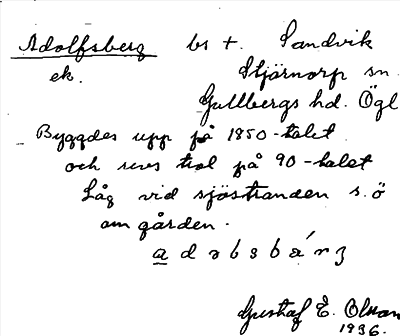 Adolfsberg bs +. Sandvik
ek. Stjärnorp sn.
Gullbergs hd. Ögl
Byggdes upp på 1850-talet
och revs trol på 90-talet
Låg vid sjöstranden s.ö
om gården.
a d ɔ b s b ä́ r ʒ
Gustaf E. Olsson
1936.